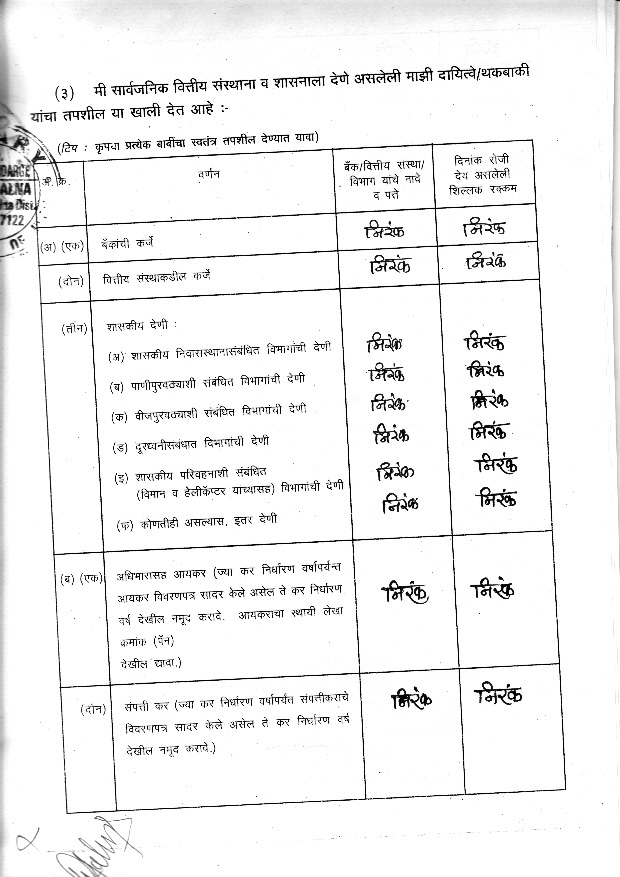 (३) मी सार्वजनिक वित्तीय संस्थाना व शासनाला देणे असलेली माझी दायित्वे/थकबाकी
यांचा तपशील या खाली देत आहे :-
(टिप : कृपया प्रत्येक बाबींचा स्वतंत्र तपशील देण्यात यावा)
DARGE
ALNA
7122
अ. क्र. वर्णन बँक/वित्तीय संस्था/ विभाग यांचे नावे व पते दिनांक रोजी देय असलेली शिल्लक रक्कम
(अ) (एक) बँकांची कर्जे निरंक निरंक
(दोन) वित्तीय संस्थाकडील कर्जे निरंक निरंक
(तीन) शासकीय देणी :
(अ) शासकीय निवारास्थानासंबंधित विभागांची देणी निरंक निरंक
(ब) पाणीपुरवठ्याशी संबंधित विभागांची देणी निरंक निरंक
(क) वीजपुरवठ्याशी संबंधित विभागांची देणी निरंक निरंक
(ड) दूरध्वनीसंबधात विभागांची देणी निरंक निरंक
(इ) शासकीय परिवहनाशी संबंधित निरंक निरंक
(विमान व हेलीकॅप्टर यांच्यासह) विभागांची देणी
(फ) कोणतीही असल्यास, इतर देणी निरंक निरंक
(ब) (एक) अधिभारासह आयकर (ज्या कर निर्धारण वर्षापर्यन्त
आयकर विवरणपत्र सादर केले असेल ते कर निर्धारण निरंक निरंक
वर्ष देखील नमूद करावे. आयकराचा स्थायी लेखा
क्रमांक (पॅन)
देखील द्यावा.)
(दोन) संपत्ती कर (ज्या कर निर्धारण वर्षापर्यंत संपत्तीकराचे निरंक निरंक
विवरणपत्र सादर केले असेल ते कर निर्धारण वर्ष
देखील नमूद करावे.)